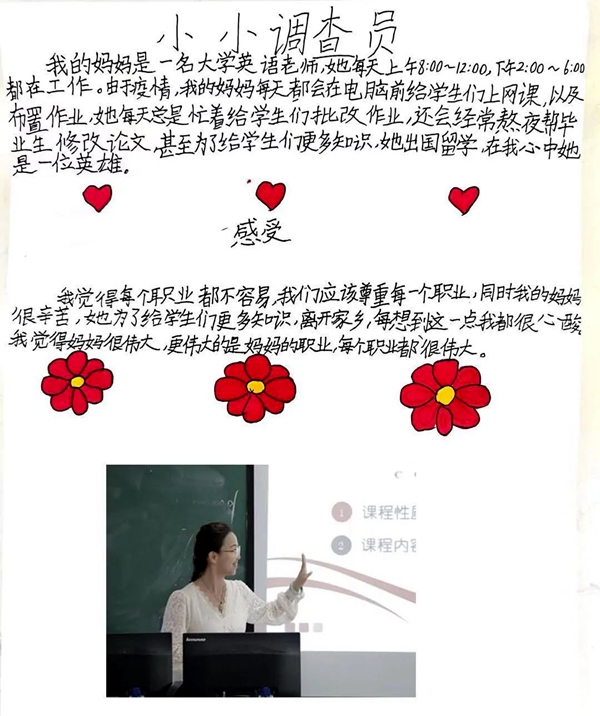 小小调查员
我的妈妈是一名大学英语老师,她每天上午8:00~12:00,下午2:00~6:00
都在工作。由于疫情,我的妈妈每天都会在电脑前给学生们上网课,以及
布置作业,她每天总是忙着给学生们批改作业,还会经常熬夜帮毕
业生修改论文,甚至为了给学生们更多知识,她出国留学,在我心中她
是一位英雄。
感受
我觉得每个职业都不容易,我们应该尊重每一个职业,同时我的妈妈
很辛苦,她为了给学生们更多知识,离开家乡,每想到这一点我都很心酸
我觉得妈妈很伟大,更伟大的是妈妈的职业,每个职业都很伟大。
1 课程性
2 课程内
Lenovo